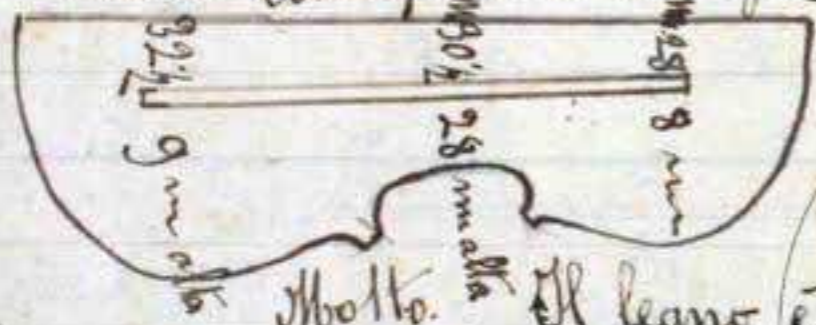 32½
30½
m 28
9 m alta
28 m alta
8 m
Molto. Il legno è